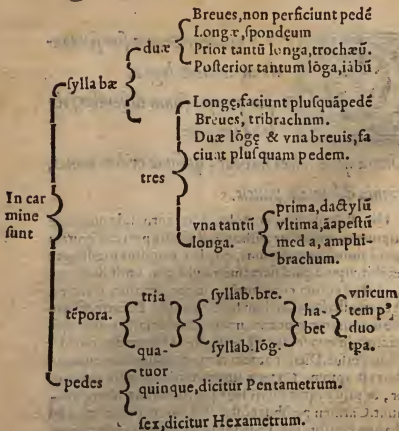 In car
mine
sunt
syllabæ
duæ
Breues, non perficiunt pedē
Longæ, spondęum
Prior tantū longa, trochæū.
Posterior tantum lōga, iābū
tres
Longę, faciunt plusquāpedē
Breues, tribrachnm.
Duæ lōgę & vna breuis, fa
ciunt plusquam pedem.
vna tantū
longa.
prima, dactylū
vltima, āapestū
med a, amphi-
brachum.
tēpora.
tria
qua-
tuor
syllab. bre.
syllab. lōg.
ha-
bet
vnicum
tempꝰ,
duo
tpa.
pedes
quinque, dicitur Pentametrum.
sex, dicitur Hexametrum.